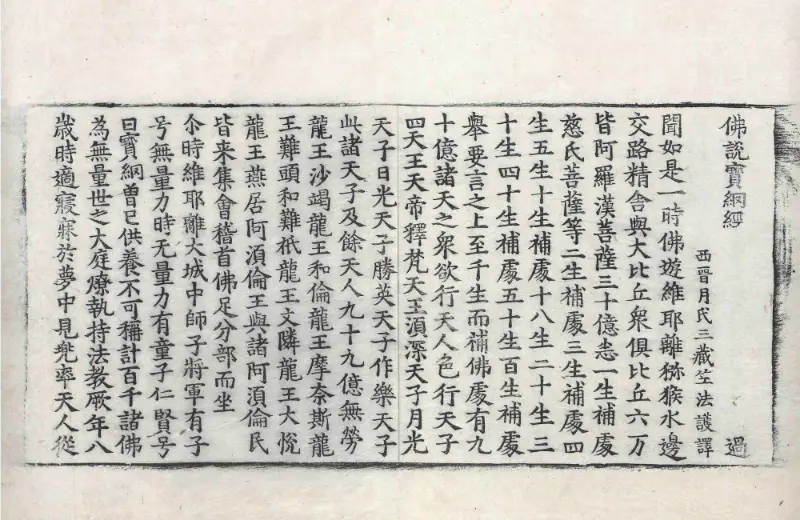 佛說寶網經 過
西晉月氏三藏竺法護譯
聞如是一時佛遊維耶離猕猴水邊
交路精舍與大比丘眾俱比丘六万
皆阿羅漢菩薩三十億悉一生補處
慈氏菩薩等二生補處三生補處四
生五生十生補處十八生二十生三
十生四十生補處五十生百生補處
舉要言之上至千生而補佛處有九
十億諸天之眾欲行天人色行天子
四天王天帝釋梵天王湏深天子月光
天子日光天子勝英天子作樂天子
此諸天子及餘天人九十九億無勞
龍王沙竭龍王和倫龍王摩奈斯龍
王難頭和難袛龍王文隣龍王大悅
龍王燕居阿湏倫王與諸阿湏倫民
皆来集會稽首佛足分部而坐
尒時維耶離大城中師子將軍有子
号無量力時无量力有童子仁賢号
曰寶網曽已供養不可稱計百千諸佛
為無量世之大庭燎執持法教厥年八
歲時適寢寐於夢中見兠率天人從